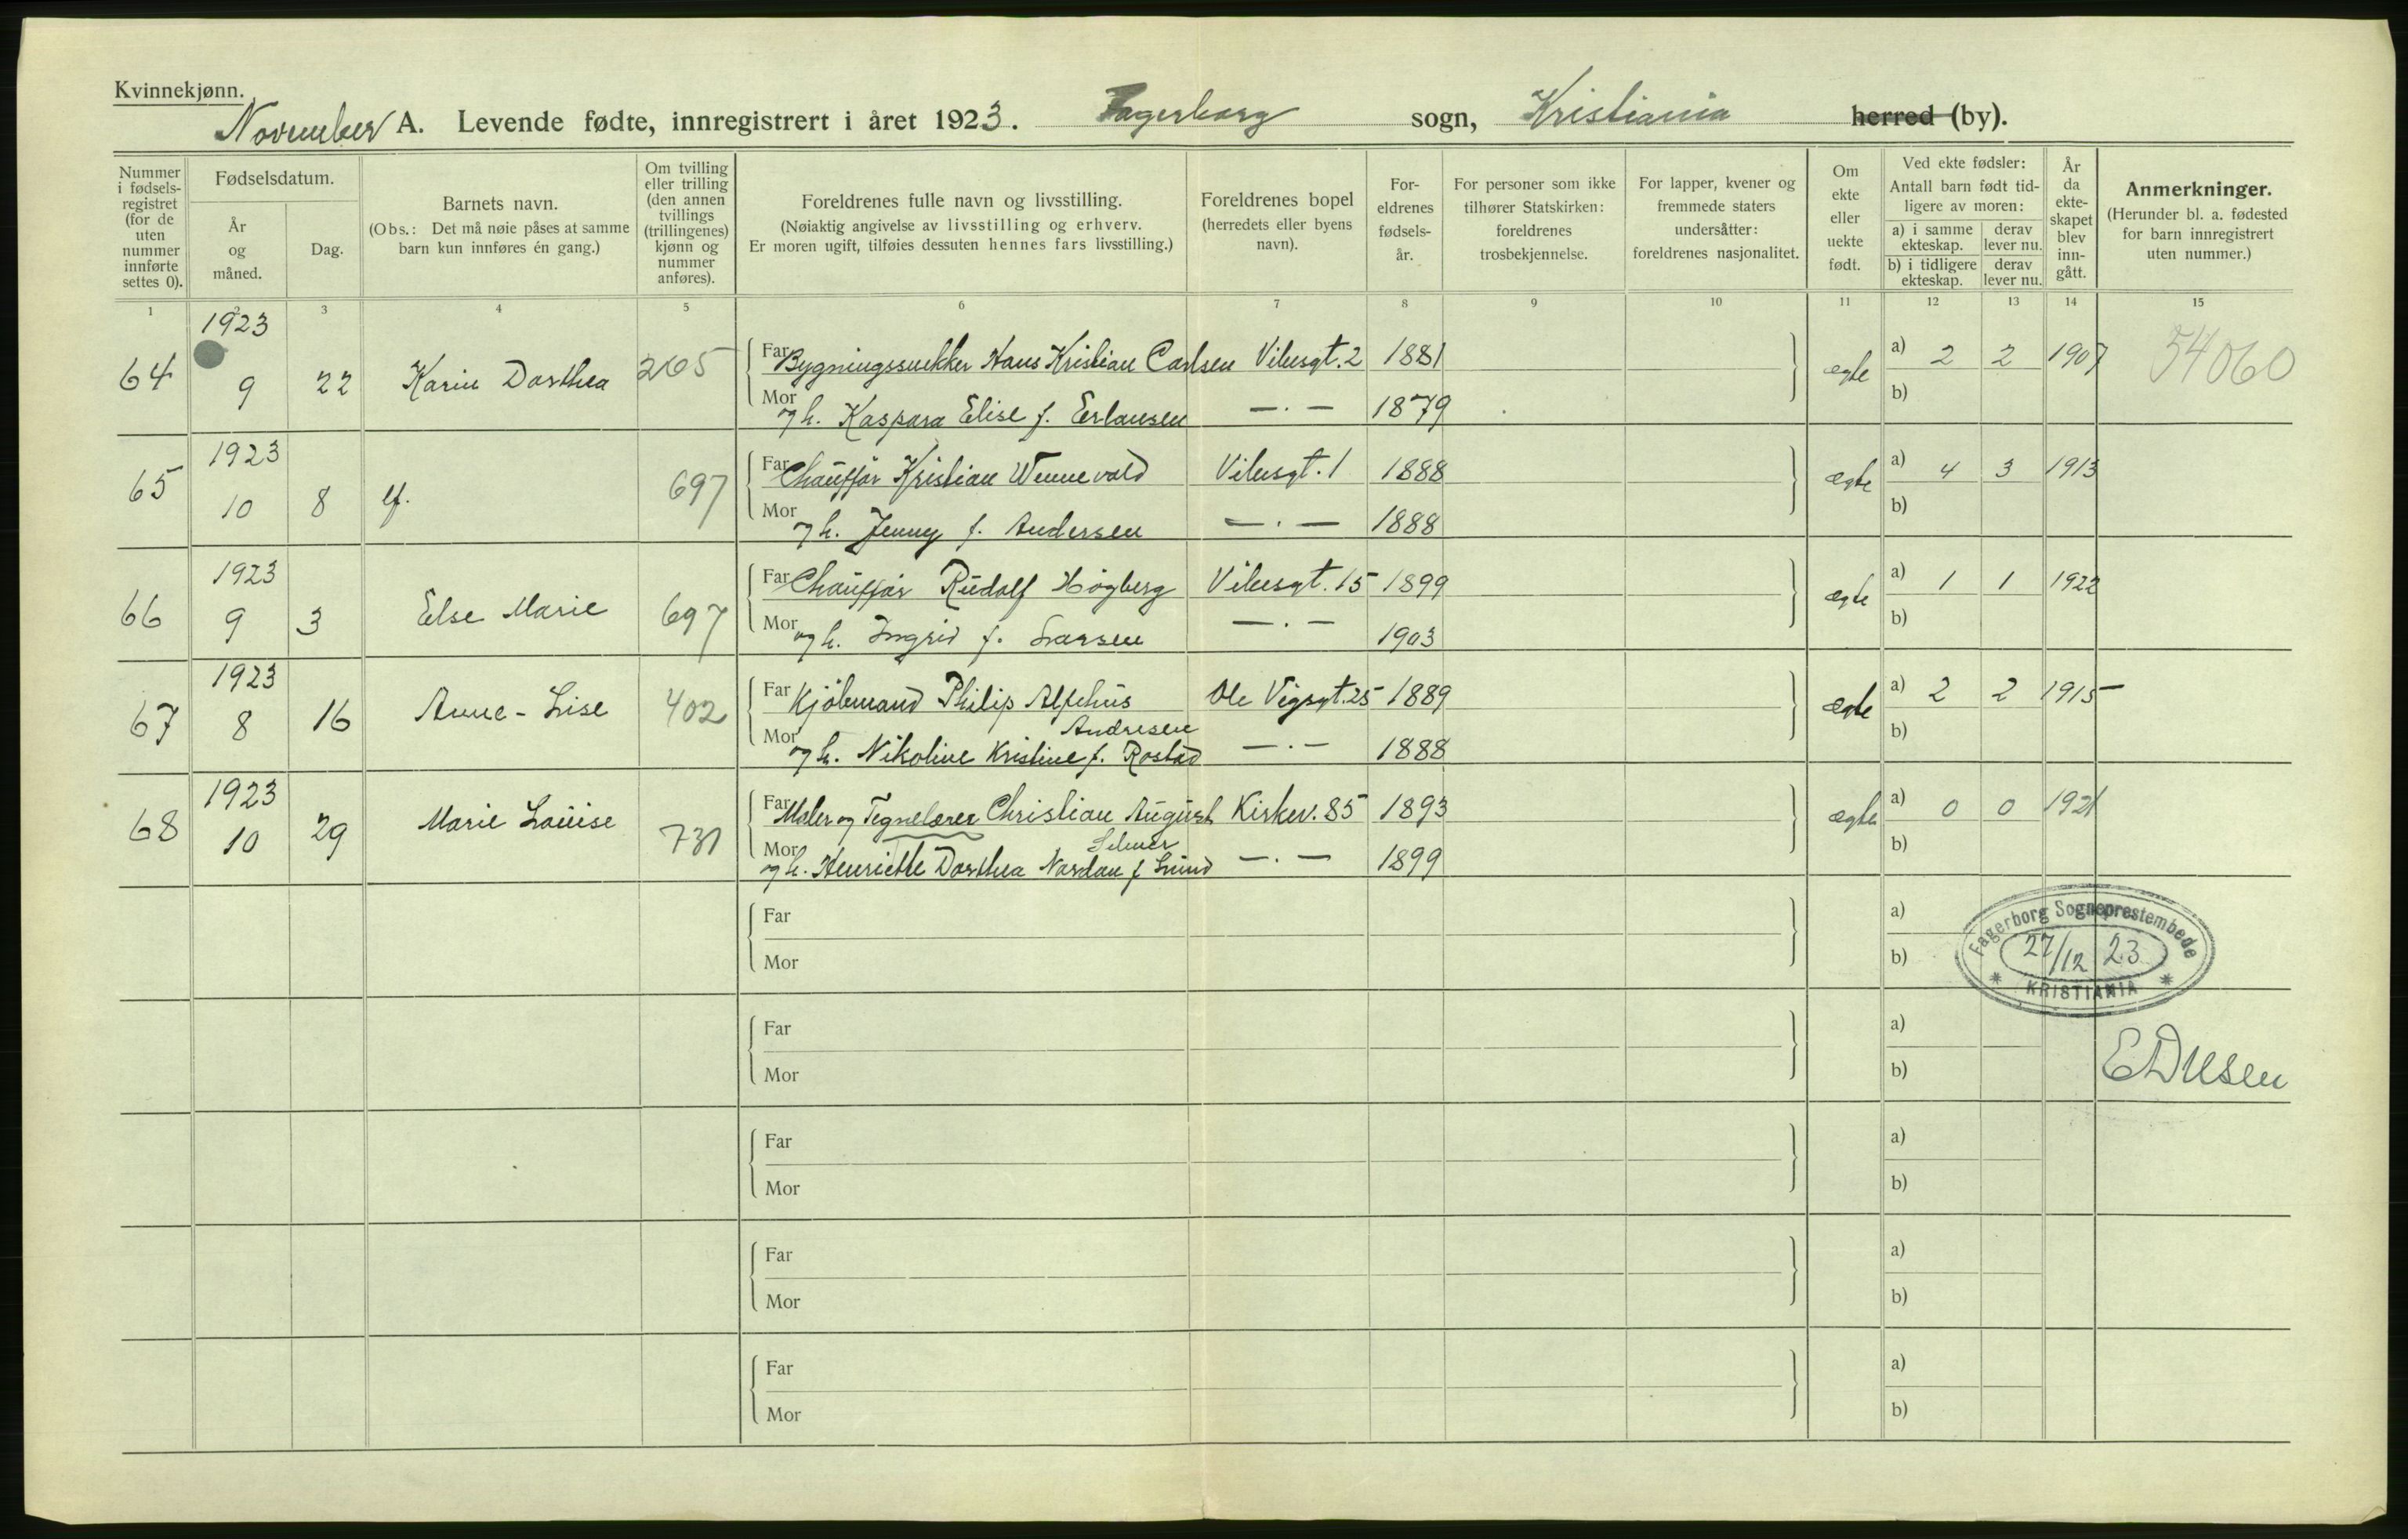 Kvinnekjønn.
November A. Levende fødte, innregistrert i året 1923. Fagerborg sogn, Kristiania herred (by).
Nummer i fødsels-registret (for de uten nummer innførte settes 0).
Fødselsdatum.
År og måned.
Dag.
Barnets navn.
(Obs.: Det må nøie påses at samme barn kun innføres én gang.)
Om tvilling eller trilling (den annen tvillings (trillingenes) kjønn og nummer anføres).
Foreldrenes fulle navn og livsstilling.
(Nøiaktig angivelse av livsstilling og erhverv.
Er moren ugift, tilføies dessuten hennes fars livsstilling.)
Foreldrenes bopel
(herredets eller byens navn).
For-eldrenes fødsels-år.
For personer som ikke tilhører Statskirken: foreldrenes trosbekjennelse.
For lapper, kvener og fremmede staters undersåtter: foreldrenes nasjonalitet.
Om ekte eller uekte født.
Ved ekte fødsler:
Antall barn født tid-ligere av moren:
a) i samme ekteskap.
derav lever nu.
b) i tidligere ekteskap.
derav lever nu.
År da ekte-skapet blev inn-gått.
Anmerkninger.
(Herunder bl. a. fødested for barn innregistrert uten nummer.)
1 2 3 4 5 6 7 8 9 10 11 12 13 14 15
64 1923 9 22 Karin Dorthea 265 Far Bygningssnekker Hans Kristian Carlsen Vibesgt. 2 1881 ægte a) 2 2 1907 54060
Mor og h. Kaspara Elise f. Erlansen — . — 1879 b)
65 1923 10 8 uf. 697 Far Chauffør Kristian Wennevold Vibesgt. 1 1888 ægte a) 4 3 1913
Mor og h. Jenny f. Andersen — . — 1888 b)
66 1923 9 3 Else Marie 697 Far Chauffør Rudolf Høgberg Vibesgt. 15 1899 ægte a) 1 1 1922
Mor og h. Ingrid f. Larsen — . — 1903 b)
67 1923 8 16 Anne-Lise 402 Far Kjøbmand Philip Alphus Ole Vigsgt. 25 1889 ægte a) 2 2 1915
Andresen
Mor og h. Nikoline Kristine f. Rostad — . — 1888 b)
68 1923 10 29 Marie Louise 731 Far Maler og Tegnelærer Christian August Kirkev. 85 1893 ægte a) 0 0 1921
Selmer
Mor og h. Henriette Dorthea Nordan f Lund — . — 1899 b)
Far a)
Mor b)
Fagerborg Sogneprestembede
27/12 23
* KRISTIANIA *
Far a)
Mor b)
Far a)
Mor b)
Far a)
Mor b)
Far a)
Mor b)